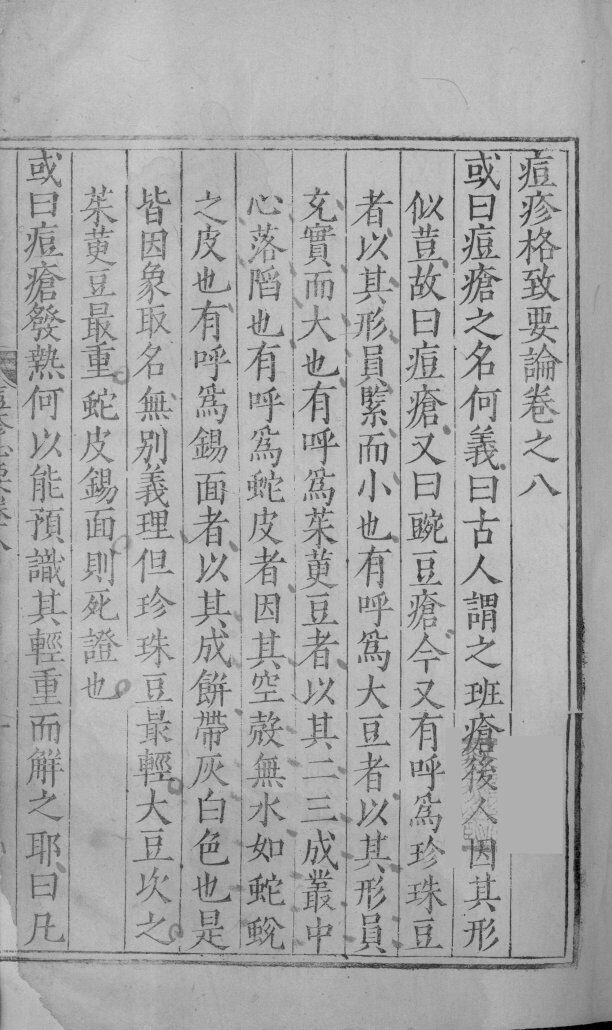 痘疹格致要論卷之八
或曰痘瘡之名何義曰古人謂之班瘡後人因其形
似荳故曰痘瘡又曰豌豆瘡今又有呼爲珍珠豆
者以其形員緊而小也有呼爲大豆者以其形員
充實而大也有呼爲茱萸豆者以其二三成叢中
心落陷也有呼爲蛇皮者因其空殼無水如蛇蛻
之皮也有呼爲錫面者以其成餅帶灰白色也是
皆因象取名無别義理但珍珠豆最輕大豆次之
茱萸豆最重蛇皮錫面則死證也
或曰痘瘡發熱何以能預識其輕重而觧之耶曰凡